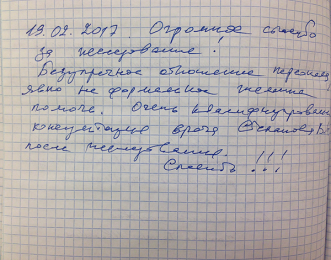 19.02.2017. Огромное спасибо
за исследование!
Безупречное отношение персонала,
явно не формальное желание
помочь. Очень квалифицированная
консультация врача Степанова
после исследования.
Спасибо!!!